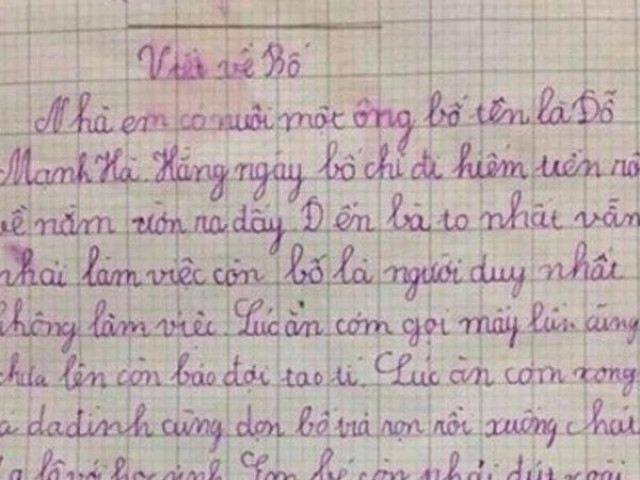 Viết về Bố
Nhà em có nuôi một ông bố tên là Đỗ
Mạnh Hà. Hằng ngày bố chỉ đi kiếm tiền rồ
về nằm ườn ra đấy Đến bà to nhất vẫn
phải làm việc còn bố là người duy nhất
không làm việc Lúc ăn cơm gọi mấy lần cũng
chưa lên còn bảo đợi tao tí. Lúc ăn cơm xong
cả da đình cùng dọn bố trả nọn rồi xuống
học sinh còn phải